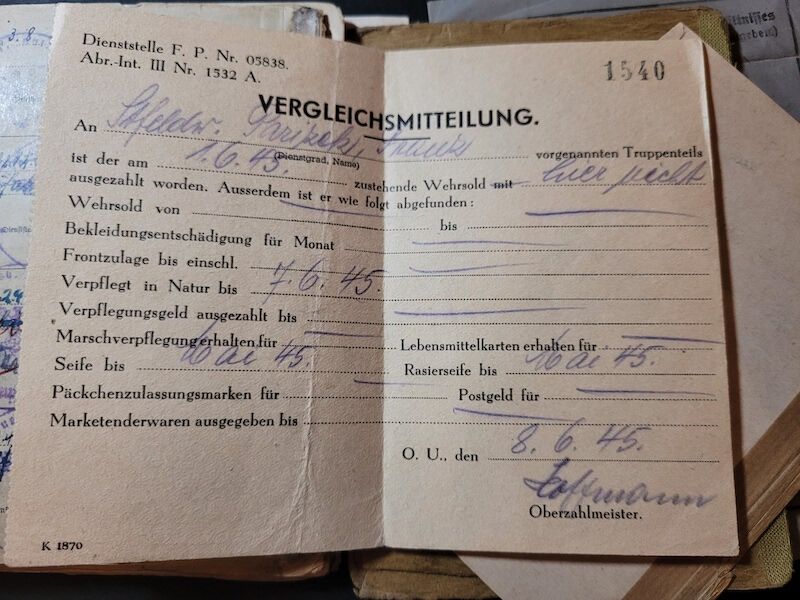 Dienststelle F. P. Nr. 05838.
Abr.-Int. III Nr. 1532 A.
1540
VERGLEICHSMITTEILUNG.
An Stfeldw.
(Dienstgrad, Name)
vorgenannten Truppenteils
ist der am 1.6.45. zustehende Wehrsold mit hier nicht
ausgezahlt worden. Ausserdem ist er wie folgt abgefunden:
Wehrsold von bis
Bekleidungsentschädigung für Monat
Frontzulage bis einschl.
Verpflegt in Natur bis 7.6.45.
Verpflegungsgeld ausgezahlt bis
Marschverpflegung erhalten für Lebensmittelkarten erhalten für
Seife bis Mai 45. Rasierseife bis Mai 45.
Päckchenzulassungsmarken für Postgeld für
Marketenderwaren ausgegeben bis
O. U., den 8.6.45.
Hoffmann
Oberzahlmeister.
K 1870
3.8